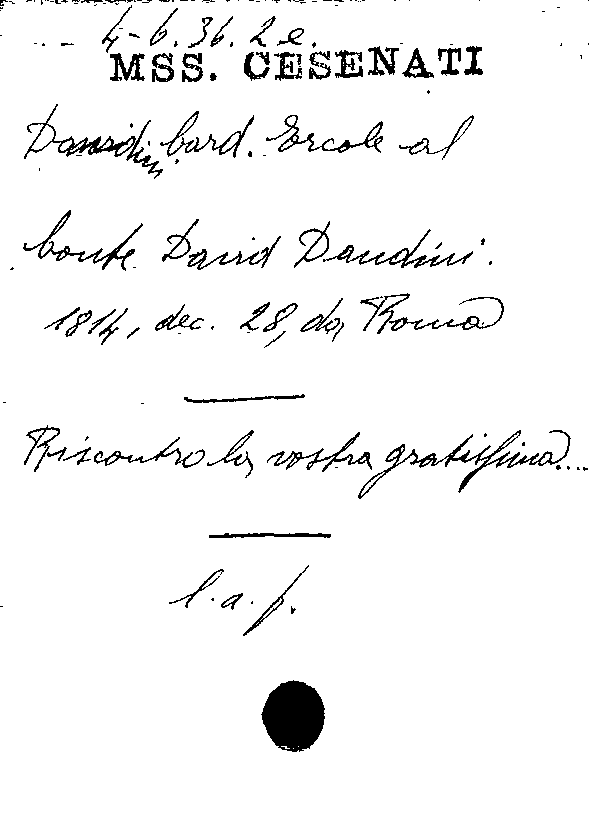 4-6.36.2 e.
MSS. CESENATI
Dandini card. Ercole al
Conte David Dandini.
1814, dec. 28, da Roma
Riscontro la vostra gratissima....
l. a. f.